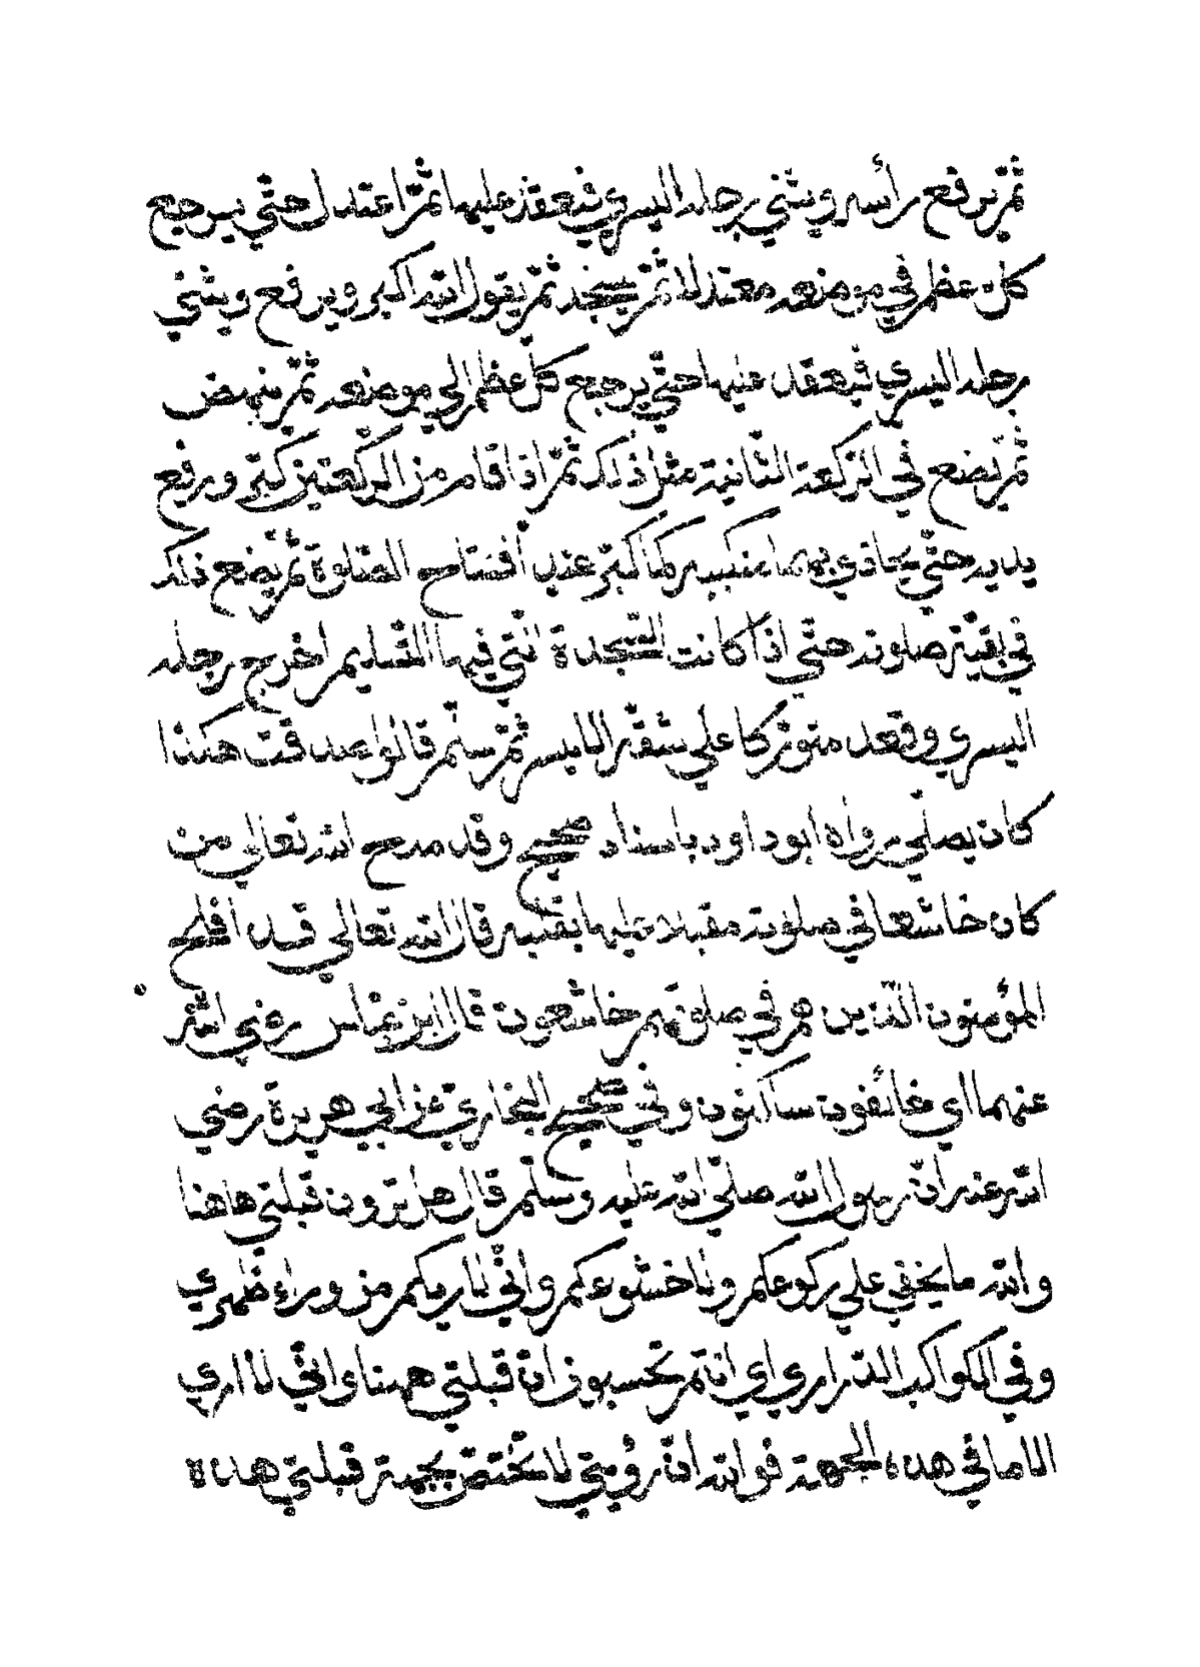 ثمّ يرفع رأسه ويثني رجله اليسري فيقعد عليها ثمّ اعتدل حتّي يرجع
كل عظم في موضعه معتدلا ثمّ يسجد ثمّ يقول الله اكبر ويرفع ويثني
رجله اليسري فيقعد عليها حتّي يرجع كلّ عظم الي موضعه ثمّ ينهض
ثمّ يضع في الرّكعة الثّانية مثل ذلك ثمّ اذا قام من الركعتين كبّر ورفع
يديه حتّي يحاذي بهما منكبيه كما كبّر عند افتتاح الصّلوة ثمّ يضع ذلك
في بقيّة صلوته حتّي اذا كانت السّجدة الّتي فيها التّسليم اخرج رجله
اليسري وقعد متورّكا علي شقّه الايسر ثمّ سلّم قالوا صدقت هكذا
كان يصلّي رواه ابو داود باسناد صحيح وقد مدح الله تعالي من
كان خاشعا في صلوته مقبلا عليها بقلبه قال الله تعالي قد افلح
المؤمنون الّذين هم في صلوتهم خاشعون قال ابن عبّاس رضي الله
عنهما اي خائفون ساكنون وفي صحيح البخاري عن ابي هريرة رضي
الله عنه انّ رسول الله صلّي الله عليه وسلّم قال هل ترون قبلتي هاهنا
والله ما يخفي علي ركوعكم ولا خشوعكم وانّي لاريكم من وراء ظهري
وفي الكواكب الدّراري اي انتم تحسبون انّ قبلتي ههنا وانّي لا اري
الا ما في هذه الجهة فوالله انّ رؤيتي لا تختصّ بجهة قبلتي هذه